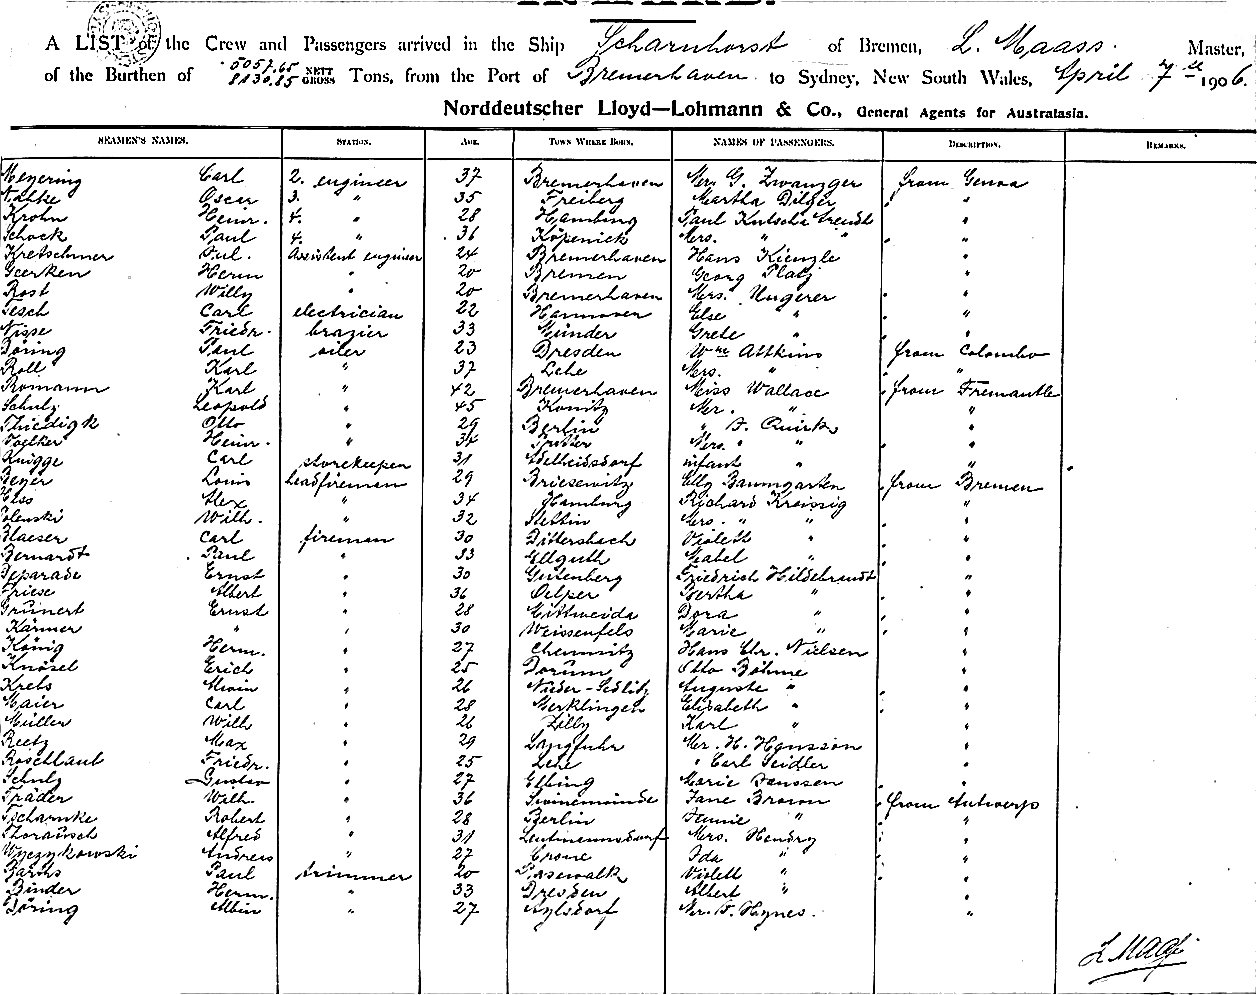 INWARD.
A LIST of the Crew and Passengers arrived in the Ship Scharnhorst of Bremen, L. Maass. Master,
of the Burthen of 5057.65 NETT 8130.85 GROSS Tons, from the Port of Bremerhaven to Sydney, New South Wales, April 7th 1906.
Norddeutscher Lloyd—Lohmann & Co., General Agents for Australasia.
SEAMEN'S NAMES. STATION. AGE. TOWN WHERE BORN. NAMES OF PASSENGERS. DESCRIPTION. REMARKS.
Meyering Carl 2. engineer 37 Bremerhaven Mr. G. Zwanzger from Genoa
Oscar 3. " 35 Freiberg Martha Dilger "
Krohn Heinr. 4. " 28 Hamburg Paul Kutscha "
Schock Paul 4. " 36 Köpenick Mrs. " " "
Kretschmer Jul. Assistent engineer 24 Bremerhaven Hans Kienzle "
Geerken Herm " 20 Bremen Georg Platz "
Rost Willy " 20 Bremerhaven Mrs. Ungerer "
Tesch Carl electrician 22 Hannover Else " "
Nisse Friedr. brazier 33 Münder Grete " "
Döring Paul oiler 23 Dresden Wm Attkins from Colombo
Roll Karl " 37 Lehe Mrs. " "
Romann Karl " 42 Bremerhaven Miss Wallace from Fremantle
Schulz Leopold " 45 Konitz Mr. " "
Thiedigk Otto " 29 Berlin " F. Quirk "
Voelker Heinr. " 34 Mrs. " " "
Knigge Carl storekeeper 31 Adelheidsdorf infant " "
Beyer Louis leadfireman 29 Briesewitz Elly Baumgarten from Bremen
Alex " 34 Hamburg Richard Kreissig "
Wilh. " 32 Stettin Mrs. " " "
Haeser Carl fireman 30 Dittersbach Violett " "
Bernardt Paul " 33 Ellguth Mabel " "
Deparade Ernst " 30 Gutenberg Friedrich Hildebrandt "
Friese Albert " 36 Oelper Bertha " "
Grünert Ernst " 28 Mittweida Dora " "
Kärmer " " 30 Weissenfels Marie " "
König Herm. " 27 Chemnitz Hans Chr. Nielsen "
Knösel Erich " 25 Dorum Otto Böhme "
Krebs Alwin " 26 Nieder-Sedlitz Auguste " "
Maier Carl " 28 Merklingen Elisabeth " "
Müller Wilh " 26 Zilly Karl " "
Reetz Max " 29 Langfuhr Mr. H. Hansson "
Roschlaub Friedr. " 25 Lehe " Carl Seidler "
Schulz Gustav " 27 Elbing Marie Janssen "
Träder Wilh. " 36 Swinemünde Jane Brown from Antwerp
Tscharnke Robert " 28 Berlin Fannie " "
Thoräusch Alfred " 31 Leutmannsdorf Mrs. Hendry "
Wyczykowski Andreas " 27 Crone Ida " "
Barths Paul trimmer 20 Pasewalk Violett " "
Binder Herm. " 33 Dresden Albert " "
Döring Albin " 27 Aylsdorf Mr. F. Hynes. "
L Maass